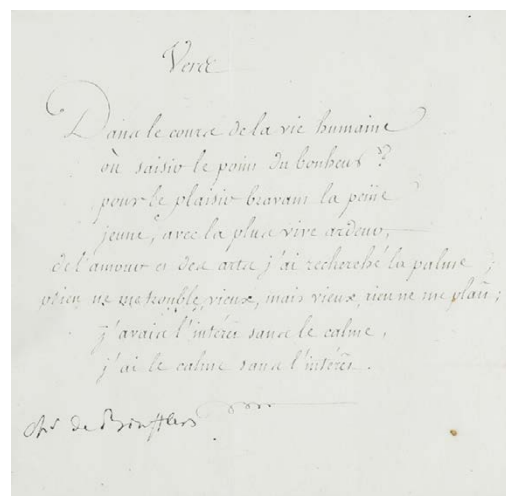 Vers
Dans le cours de la vie humaine
où saisir le point du bonheur ?
pour le plaisir bravant la peine
jeune, avec la plus vive ardeur,
de l'amour et des arts j'ai recherché la palme ;
rien ne me trouble vieux, mais vieux, rien ne me plait ;
j'avais l'intérêt sans le calme,
j'ai le calme sans l'intérêt.
de Boufflers